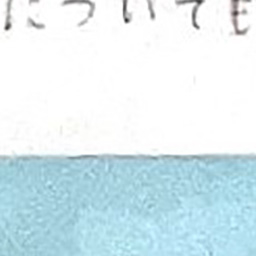 について